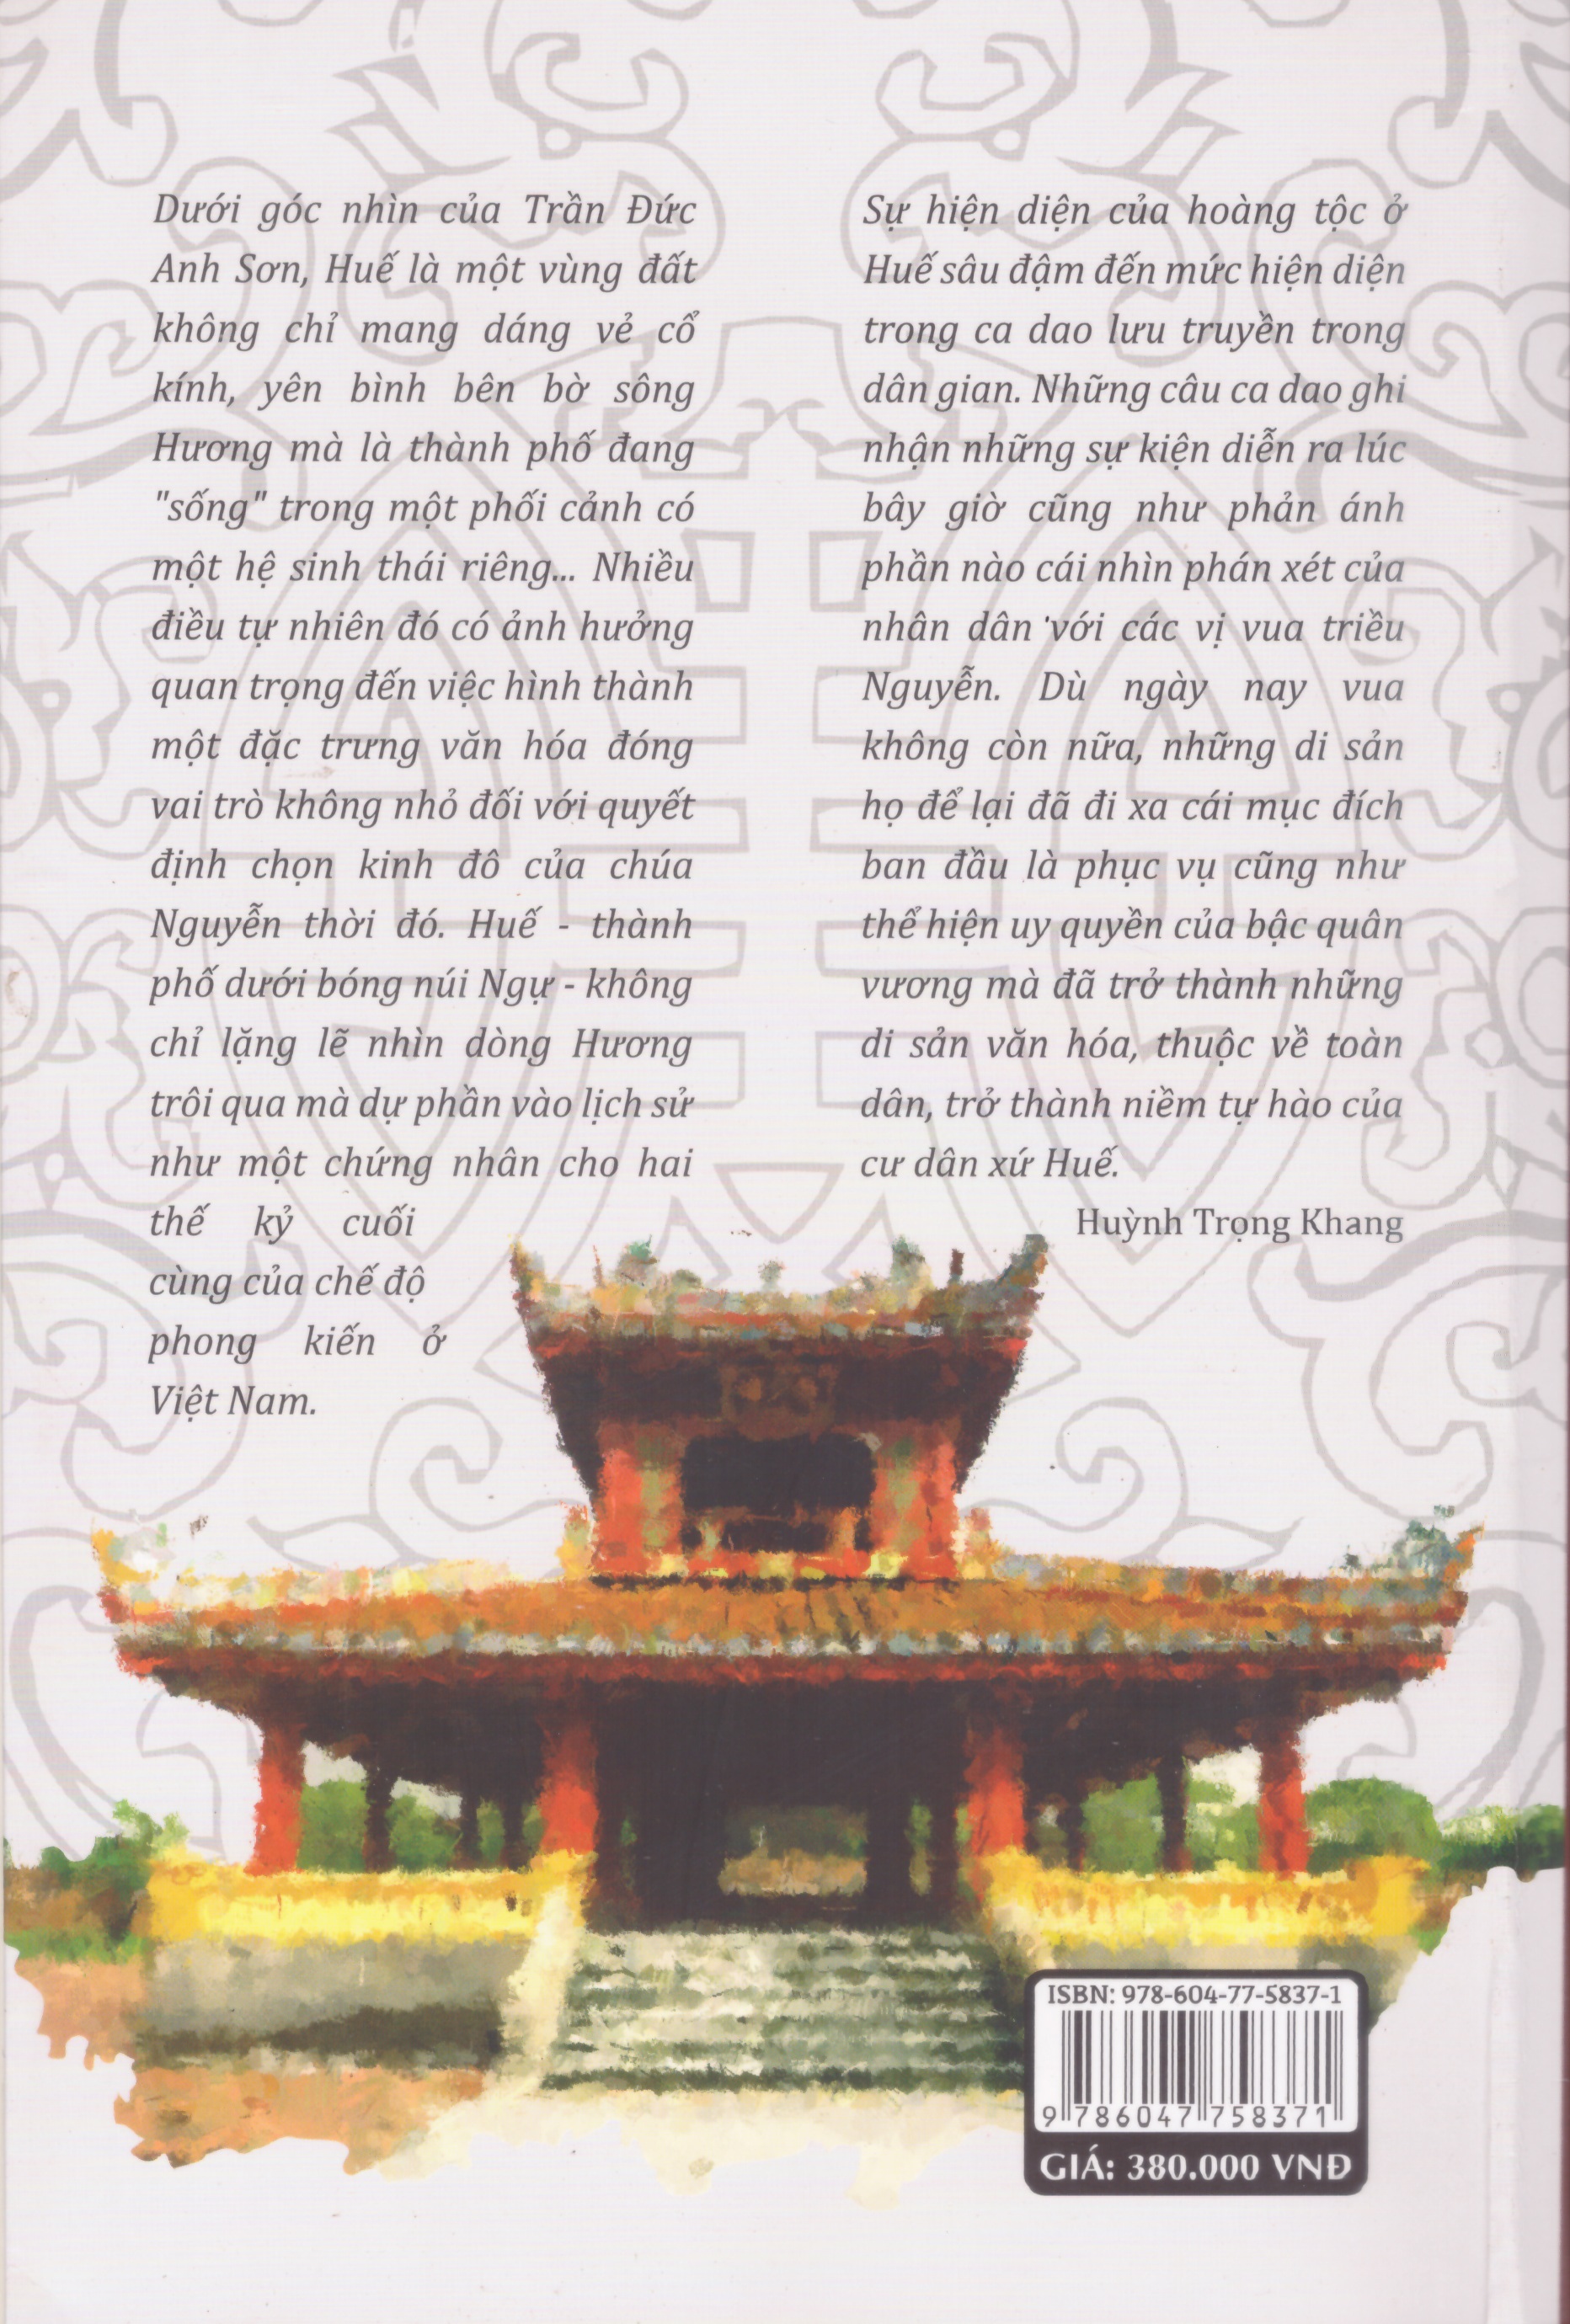 Dưới góc nhìn của Trần Đức
Anh Sơn, Huế là một vùng đất
không chỉ mang dáng vẻ cổ
kính, yên bình bên bờ sông
Hương mà là thành phố đang
"sống" trong một phối cảnh có
một hệ sinh thái riêng... Nhiều
điều tự nhiên đó có ảnh hưởng
quan trọng đến việc hình thành
một đặc trưng văn hóa đóng
vai trò không nhỏ đối với quyết
định chọn kinh đô của chúa
Nguyễn thời đó. Huế - thành
phố dưới bóng núi Ngự - không
chỉ lặng lẽ nhìn dòng Hương
trôi qua mà dự phần vào lịch sử
như một chứng nhân cho hai
thế kỷ cuối
cùng của chế độ
phong kiến ở
Việt Nam.
Sự hiện diện của hoàng tộc ở
Huế sâu đậm đến mức hiện diện
trong ca dao lưu truyền trong
dân gian. Những câu ca dao ghi
nhận những sự kiện diễn ra lúc
bây giờ cũng như phản ánh
phần nào cái nhìn phán xét của
nhân dân với các vị vua triều
Nguyễn. Dù ngày nay vua
không còn nữa, những di sản
họ để lại đã đi xa cái mục đích
ban đầu là phục vụ cũng như
thể hiện uy quyền của bậc quân
vương mà đã trở thành những
di sản văn hóa, thuộc về toàn
dân, trở thành niềm tự hào của
cư dân xứ Huế.
Huỳnh Trọng Khang
ISBN: 978-604-77-5837-1
9 786047 758371
GIÁ: 380.000 VNĐ